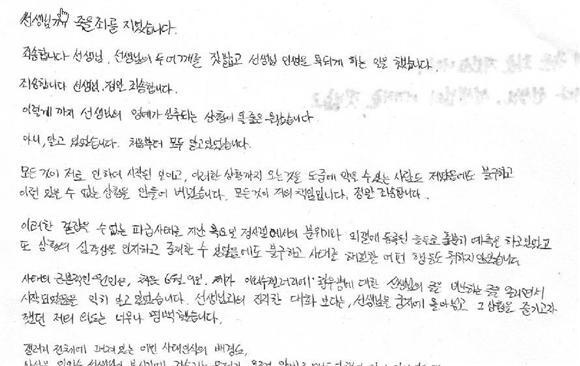 선생님께 죽을죄를 지었습니다.
죄송합니다 선생님. 선생님의 두 어깨를 짓밟고 선생님 인생을 욕되게 하는 일을 했습니다.
죄송합니다 선생님. 정말 죄송합니다.
이렇게 까지 선생님의 명예가 실추되는 상황이 올 줄은 몰랐습니다
아니, 알고 있었습니다. 처음부터 모두 알고있었습니다.
모든것이 저로 인하여 시작된 일이고, 이러한 상황까지 오는것을 도중에 막을 수 있는 사람도 저였음에도 불구하고
이런 있을 수 없는 상황을 만들어 버렸습니다. 모든것이 저의 책임입니다. 정말 죄송합니다.
이러한 걷잡을 수 없는 파급사태로 지난 목요일 분위기와 충분히 예측을 하고있었고
또 상황의 심각성을 인지하고 중재할 수 있었음에도 불구하고 사태를 위한 어떤 행동도 취하지 않았습니다.
사태의 근본적인 원인은, 제가 대한 선생님의 글을 비난하는 글을 올리면서
시작되었음을 익히 알고 있었습니다. 선생님과의 진지한 대화 보다는, 선생님을 궁지에 몰아넣고 그 상황을 즐기고자
했던 저의 의도는 너무나 명백했습니다.
전체에 퍼져있는 이번 사태인식의 배경도,